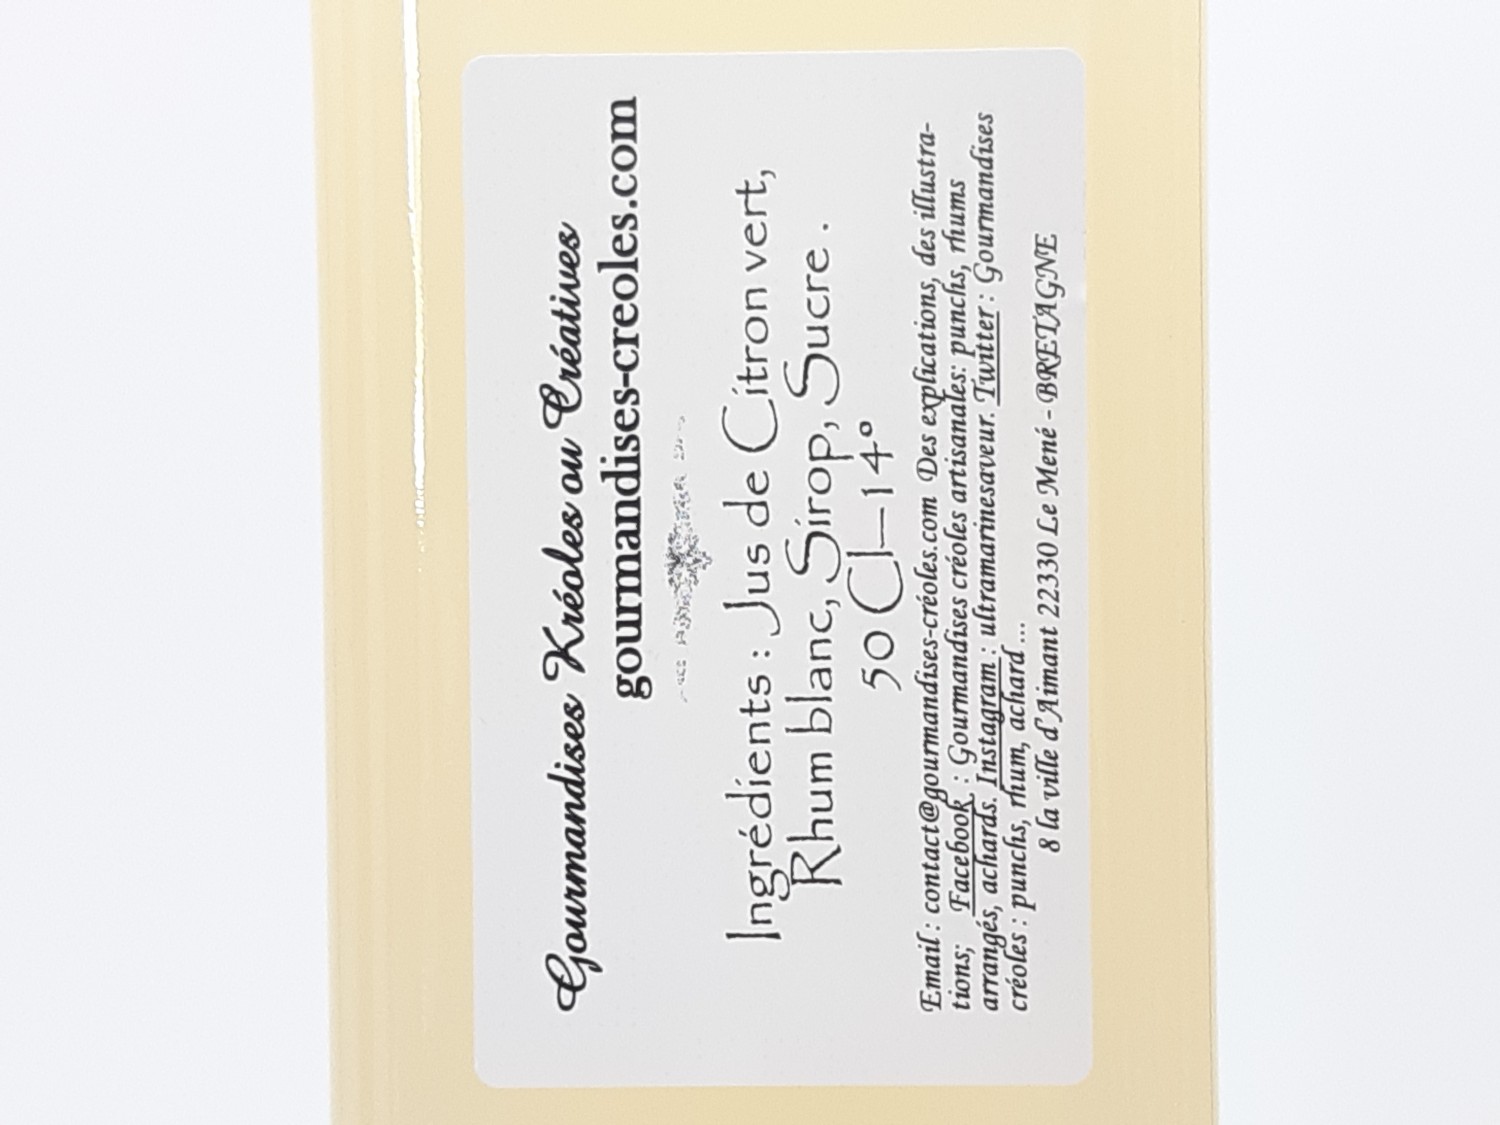 Gourmandises Kréoles ou Créatives
gourmandises-creoles.com
Ingrédients : Jus de Citron vert,
Rhum blanc, Sirop, Sucre .
50 Cl-14°
Email : contact@gourmandises-créoles.com Des explications, des illustra-
tions; Facebook : Gourmandises créoles artisanales: punchs, rhums
arrangés, achards. Instagram : ultramarinesaveur. Twitter : Gourmandises
créoles : punchs, rhum, achard…
8 la ville d'Aimant 22330 Le Mené - BRETAGNE